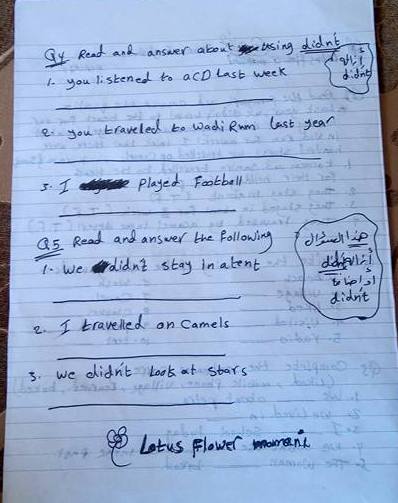 Q4 Read and answer about using didn't
didn't
1. you listened to a CD last week
2. you traveled to Wadi Rum last year
3. I played Football
Q5 Read and answer the Following
هذا السؤال
didn't
أو اضافة
didn't
1. we didn't stay in a tent
2. I travelled on Camels
3. we didn't Look at stars
Lotus Flower momani